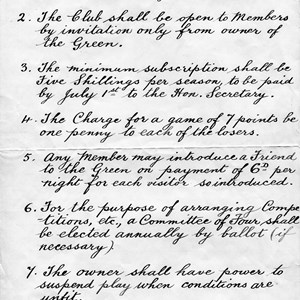 2. The Club shall be open to Members
by invitation only from owner of
the Green.
3. The minimum subscription shall be
Five Shillings per season, to be paid
by July 1st to the Hon. Secretary.
4. The Charge for a game of 7 points be
one penny to each of the losers.
5. Any Member may introduce a Friend
to the Green on payment of 6d per
night for each visitor so introduced.
6. For the purpose of arranging Compe-
titions, etc., a Committee of Four, shall
be elected annually by ballot (if
necessary).
7. The owner shall have power to
suspend play when conditions are
unfit.